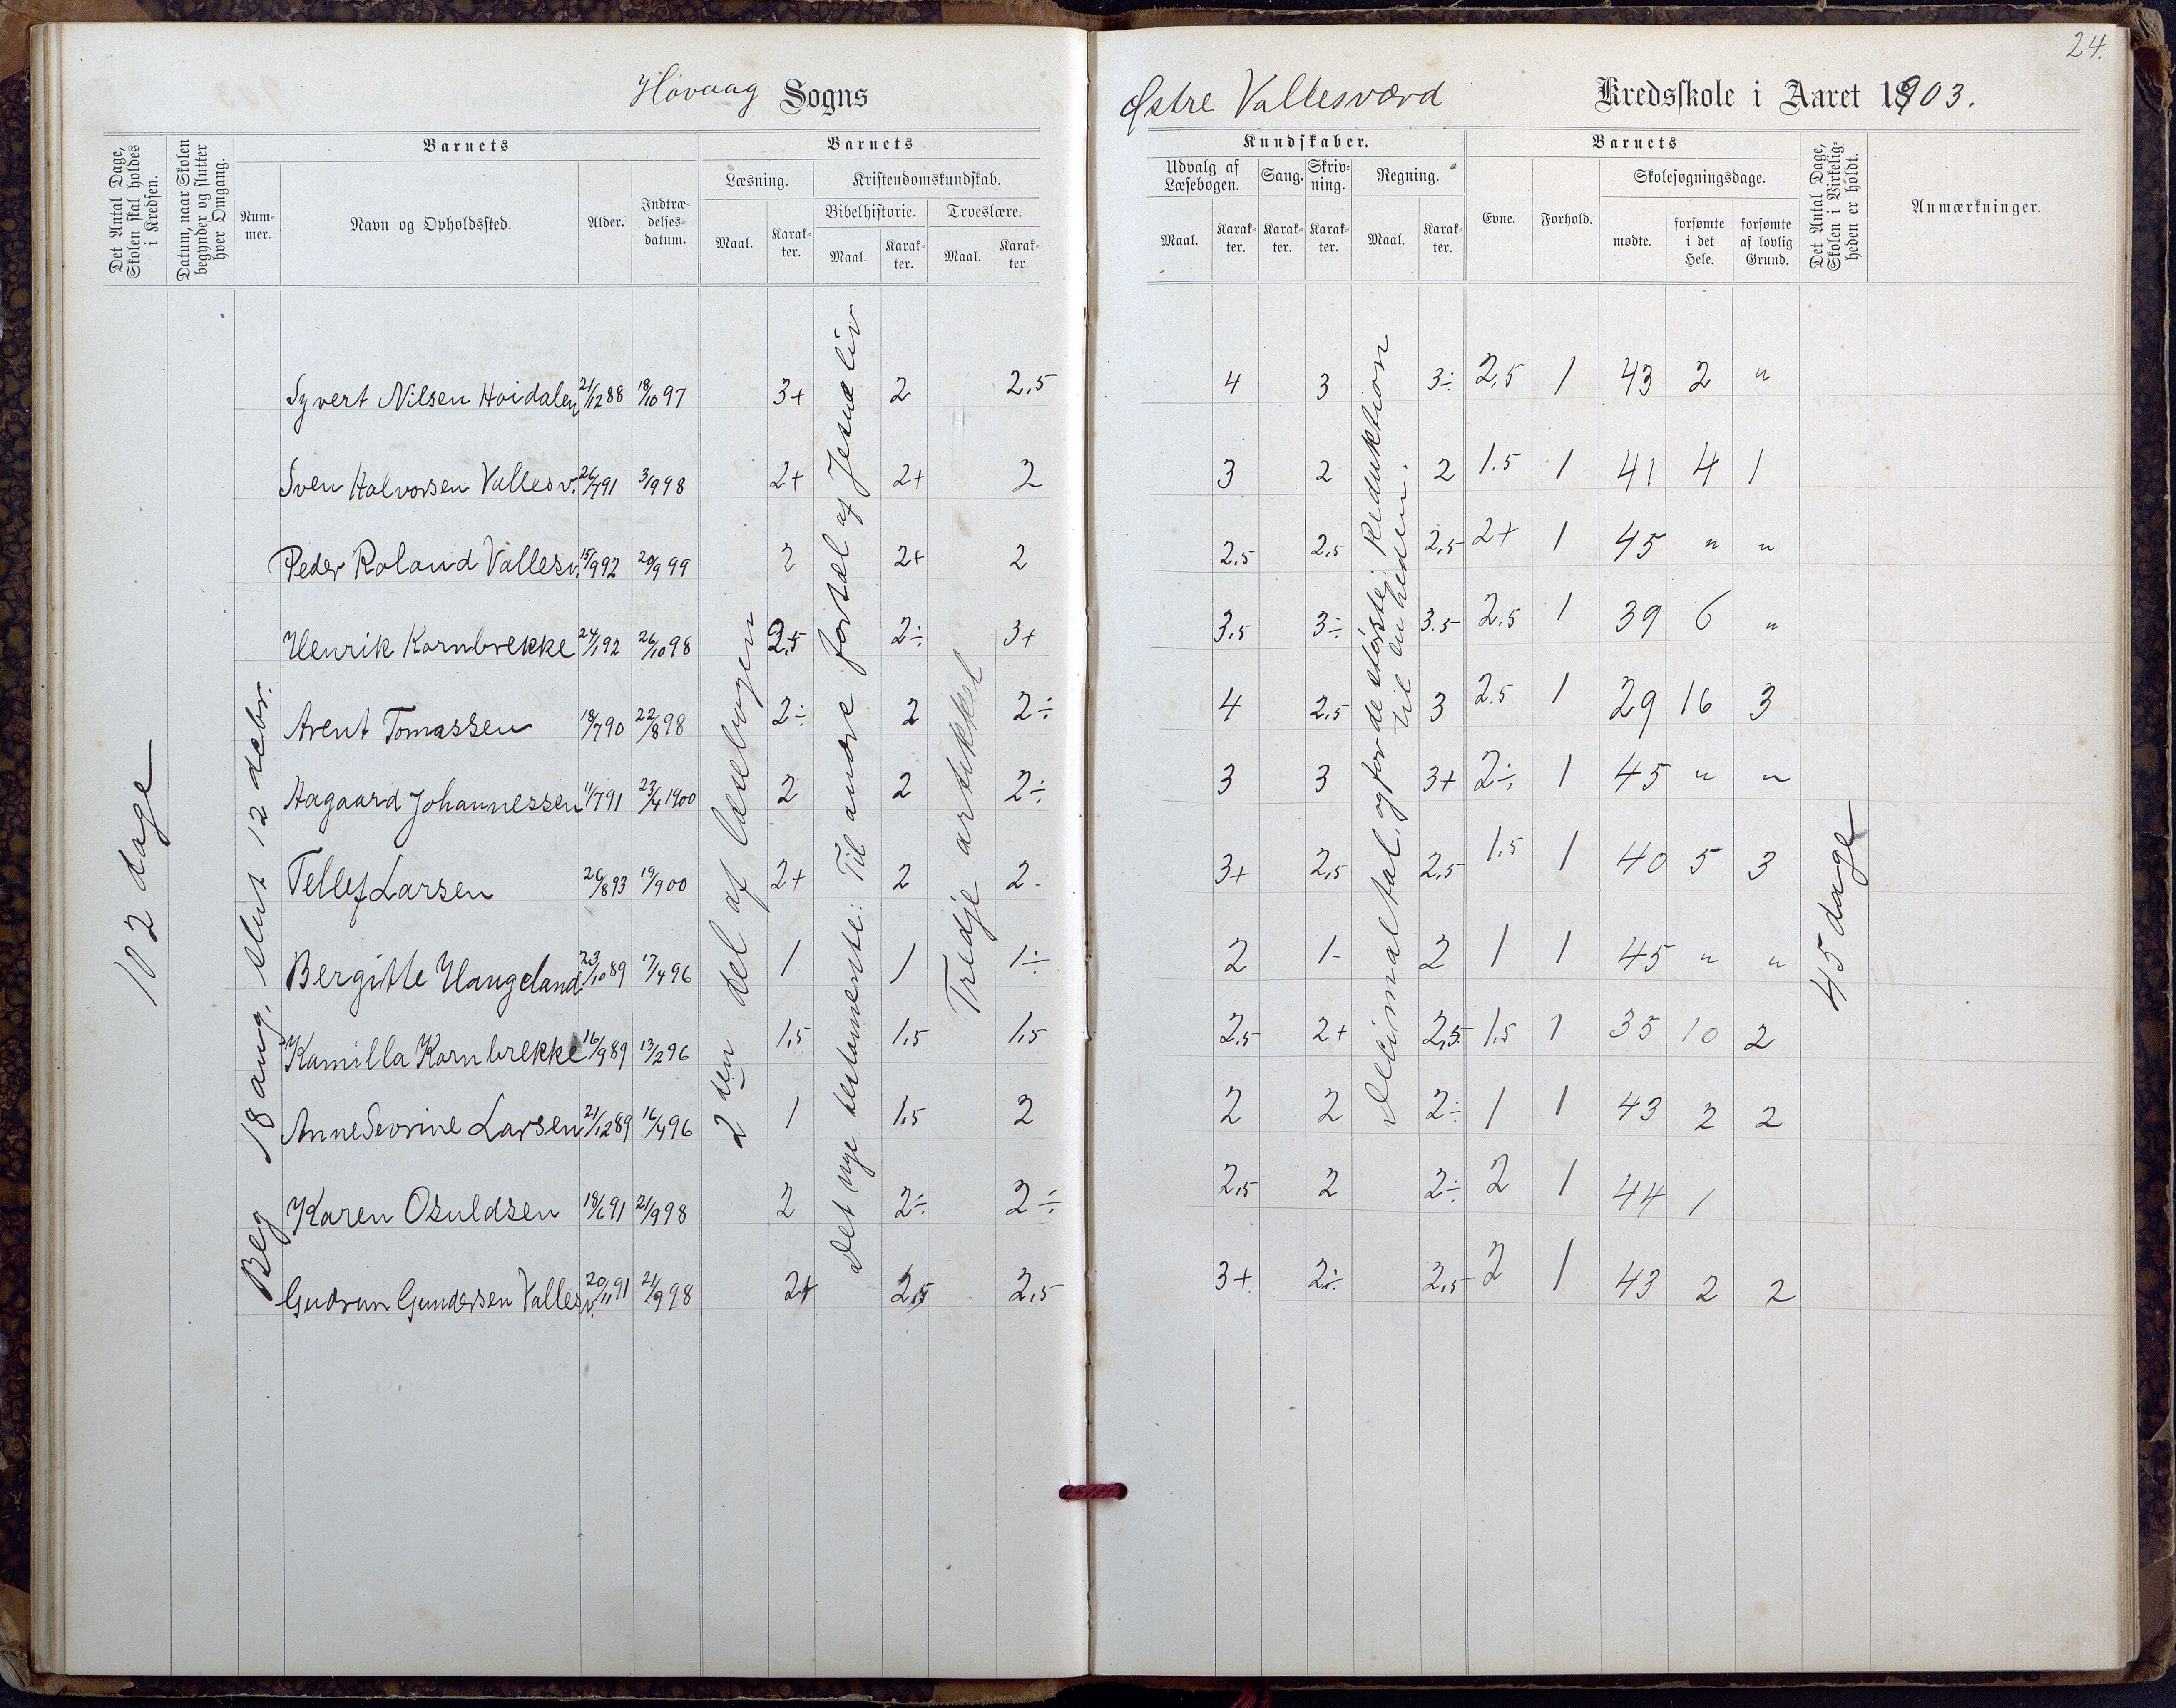 24.
Høvaag Sogns
Østre Vallesværd Kredsskole i Aaret 1903.
Det Antal Dage, Skolen skal holdes i Kredsen.
Datum, naar Skolen begynder og slutter hver Omgang.
Barnets
Nummer.
Navn og Opholdssted.
Alder.
Indtrædelsesdatum.
Barnets
Læsning.
Maal.
Karakter.
Kristendomskundskab.
Bibelhistorie.
Maal.
Karakter.
Troeslære.
Maal.
Karakter.
Kundskaber.
Udvalg af Læsebogen.
Maal.
Karakter.
Sang.
Karakter.
Skrivning.
Karakter.
Regning.
Maal.
Karakter.
Barnets
Evne.
Forhold.
Skolesøgningsdage.
mødte.
forsømte i det Hele.
forsømte af lovlig Grund.
Det Antal Dage, Skolen i Virkeligheden er holdt.
Anmærkninger.
102 dage
Beg 18 aug. slut 12 debr.
2den del af læsebogen
Det nye testamente: Til andre fortæl af Jesu liv
Tredje artikkel
Decimaltal, og for de største: Reduktion
til en heden.
45 dage
Syvert Nilsen Høidalen 21/12 88 18/10 97 3+ 2 2,5 4 3 3÷ 2,5 1 43 2 "
Sven Halvorsen Vallesv. 26/7 91 3/9 98 2+ 2+ 2 3 2 2 1.5 1 41 4 1
Peder Roland Vallesv. 15/9 92 20/9 99 2 2+ 2 2,5 2,5 2,5 2+ 1 45 " "
Henrik Kornbrekke 24/1 92 26/10 98 2,5 2÷ 3+ 3,5 3÷ 3.5 2.5 1 39 6 "
Arent Tomassen 18/7 90 22/8 98 2÷ 2 2÷ 4 2,5 3 2.5 1 29 16 3
Aagaard Johannessen 11/7 91 23/4 1900 2 2 2÷ 3 3 3+ 2÷ 1 45 " "
Tellef Larsen 26/8 93 19/9 00 2+ 2 2. 3+ 2,5 2,5 1.5 1 40 5 3
Bergitte Haugeland 23/10 89 17/4 96 1 1 1÷ 2 1- 2 1 1 45 " "
Kamilla Kornbrekke 16/9 89 13/2 96 1,5 1,5 1,5 2,5 2+ 2,5 1,5 1 35 10 2
Anne Sevrine Larsen 21/12 89 16/4 96 1 1,5 2 2 2 2÷ 1 1 43 2 2
Karen Osuldsen 18/6 91 21/9 98 2 2÷ 2÷ 2,5 2 2÷ 2 1 44 1
Gudrun Gundersen Vallesv. 20/11 91 21/9 98 2+ 2,5 2,5 3+ 2÷ 2,5 2 1 43 2 2